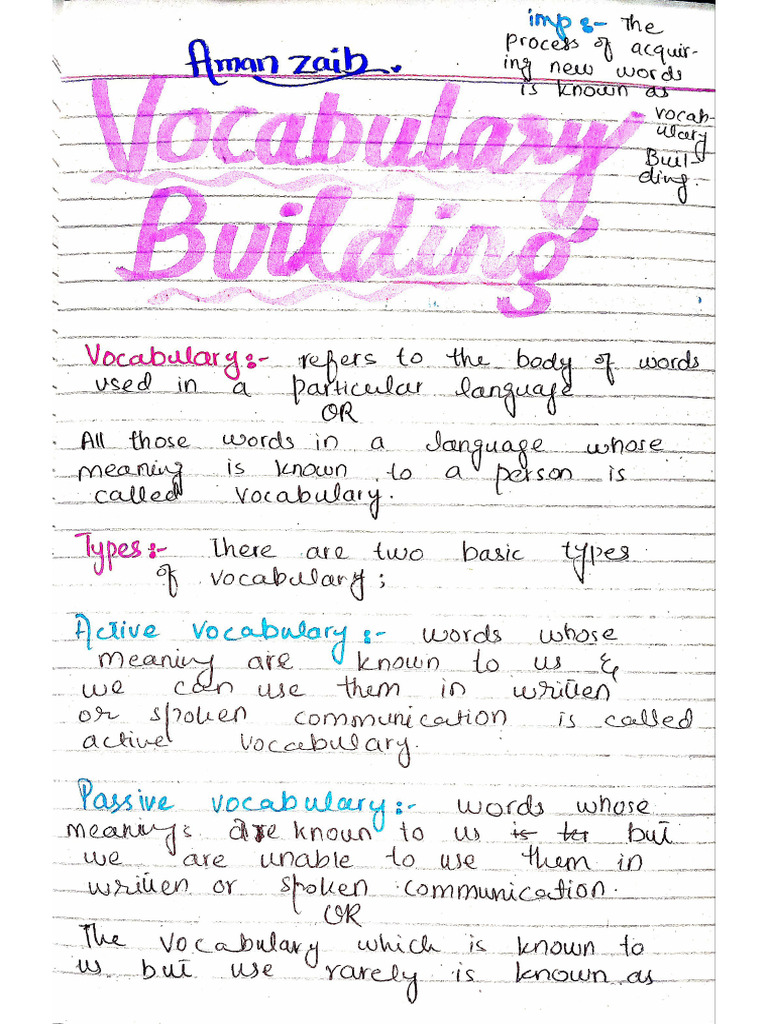 Aman Zaib.
imp :- The
process of acquir-
ing new words
is known as
vocab-
ulary
Buil-
ding.
Vocabulary
Building
Vocabulary:- refers to the body of words
used in a particular language
OR
All those words in a language whose
meaning is known to a person is
called vocabulary.
Types:- There are two basic types
of vocabulary;
Active vocabulary:- words whose
meaning are known to us &
we can use them in written
or spoken communication is called
active vocabulary.
Passive vocabulary:- words whose
meanings are known to us is but
we are unable to use them in
written or spoken communication.
OR
The vocabulary which is known to
us but use rarely is known as